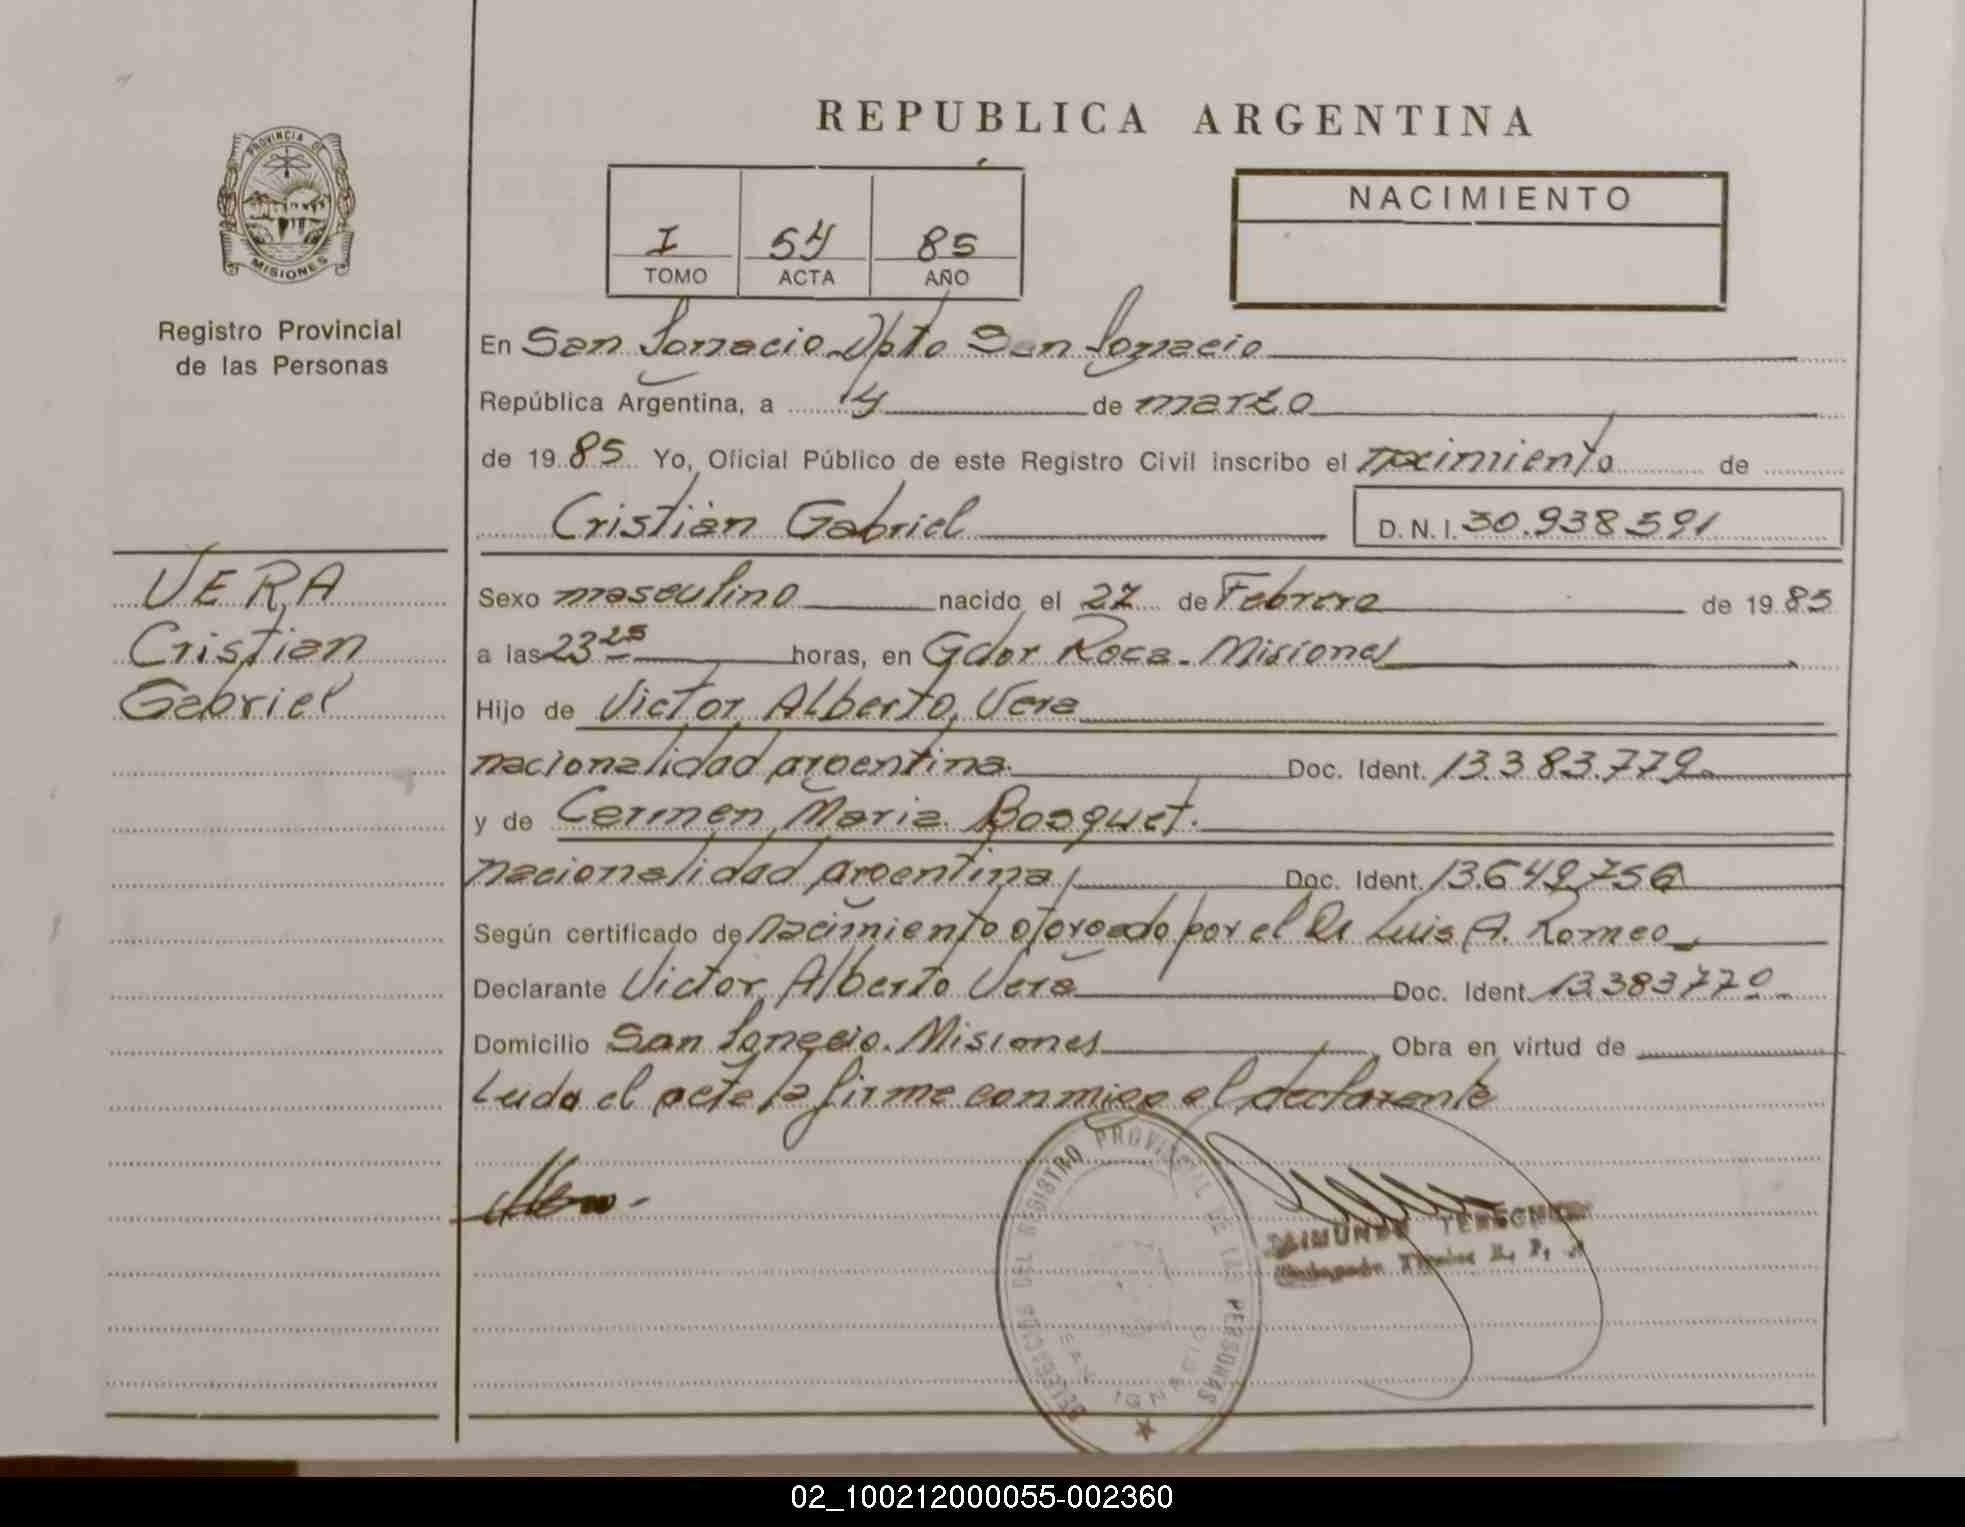 REPUBLICA ARGENTINA
PROVINCIA DE
MISIONES
Registro Provincial
de las Personas
I 54 85
TOMO ACTA AÑO
NACIMIENTO
En San Ignacio. Dpto San Ignacio
República Argentina, a 4 de marzo
de 1985 Yo, Oficial Público de este Registro Civil inscribo el nacimiento de
Cristian Gabriel D. N. I. 30.938.591
VERA
Cristian
Gabriel
Sexo masculino nacido el 27 de Febrero de 1985
a las 23 25 horas, en Gdor Roca - Misiones
Hijo de Victor Alberto Vera
nacionalidad argentina. Doc. Ident. 13.383.779
y de Carmen Maria Bosquet.
nacionalidad argentina Doc. Ident. 13.649.756
Según certificado de nacimiento otorgado por el Dr Luis A. Romeo
Declarante Victor Alberto Vera Doc. Ident. 13.383.779
Domicilio San Ignacio. Misiones Obra en virtud de
Leida el acta la firma conmigo el declarante
DELEGACION DEL REGISTRO PROVINCIAL DE LAS PERSONAS
SAN IGNACIO
RAIMUNDO
02_100212000055-002360